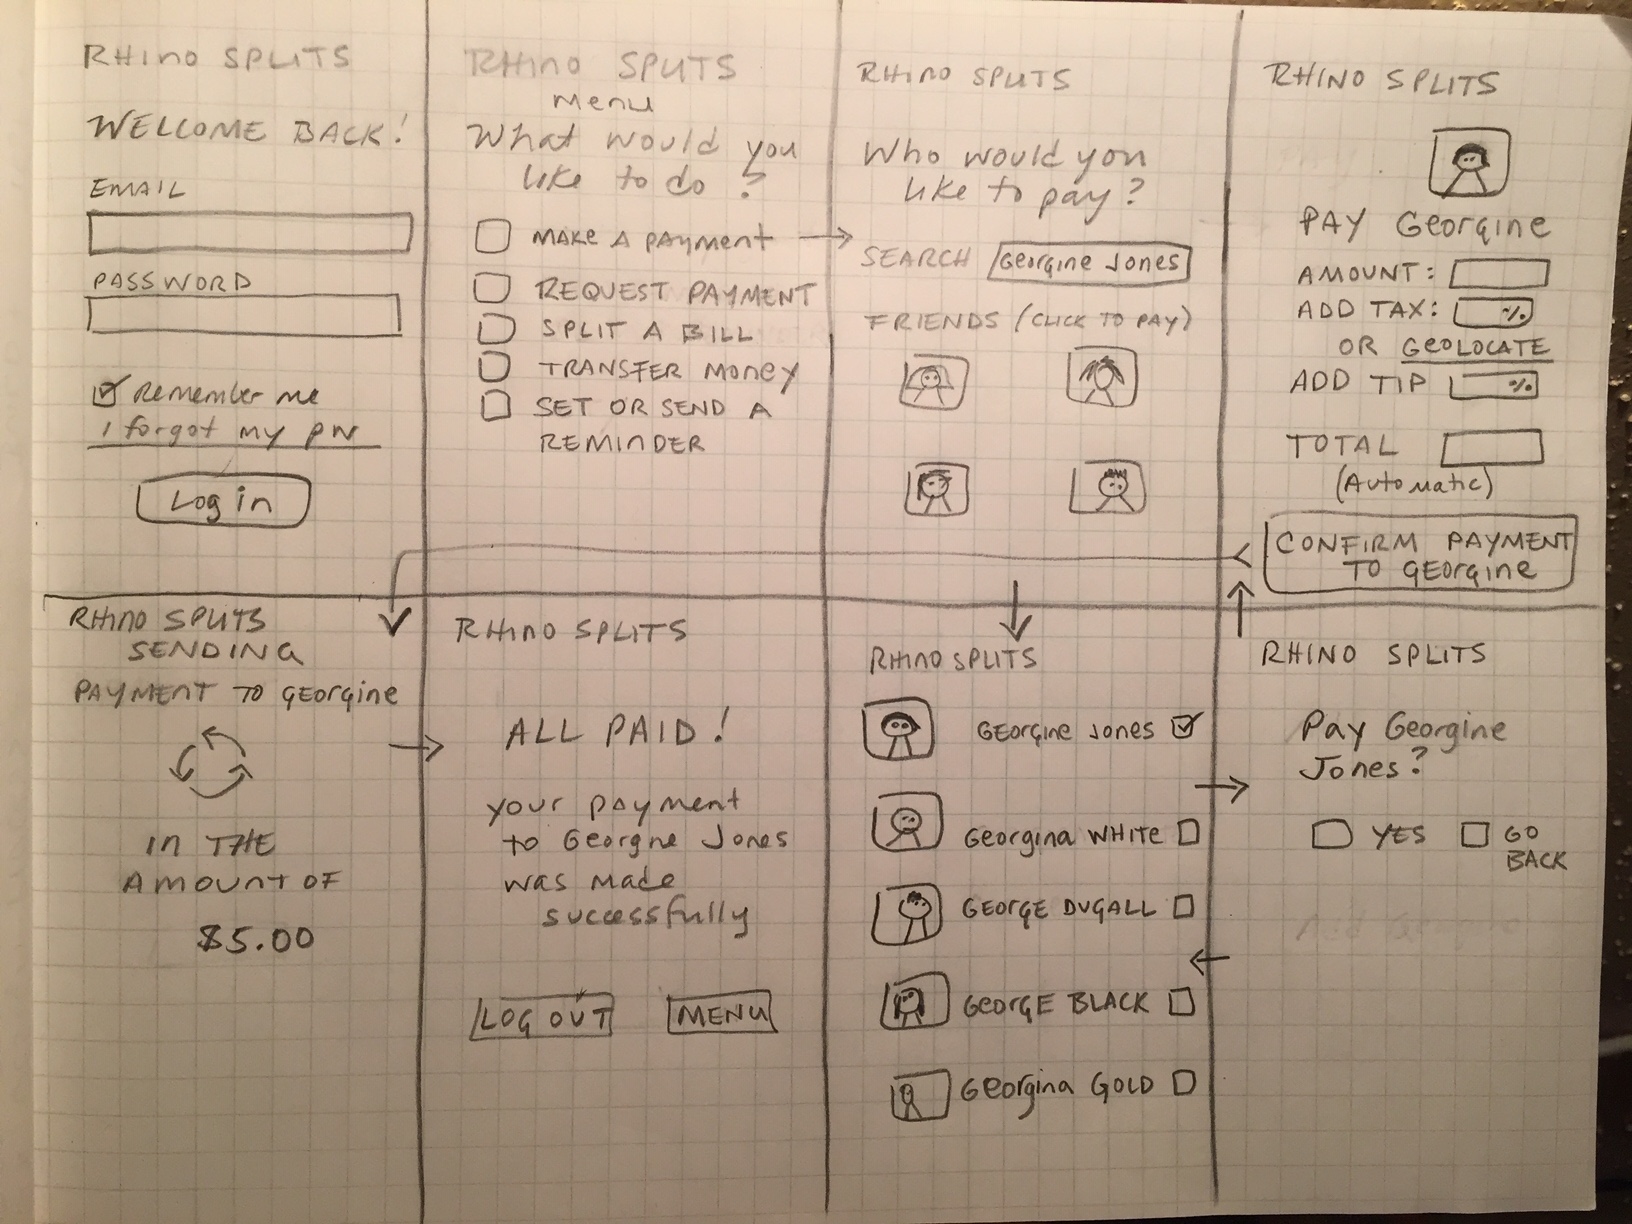 RHINO SPLITS
WELCOME BACK!
EMAIL
PASSWORD
Remember me
I forgot my PW
Log in
RHINO SPLITS
Menu
What would you
like to do?
MAKE A PAYMENT
REQUEST PAYMENT
SPLIT A BILL
TRANSFER MONEY
SET OR SEND A
REMINDER
RHINO SPLITS
Who would you
like to pay?
SEARCH Georgine Jones
FRIENDS (CLICK TO PAY)
RHINO SPLITS
PAY Georgine
AMOUNT:
ADD TAX: %
OR GEOLOCATE
ADD TIP %
TOTAL
(Automatic)
CONFIRM PAYMENT
TO GEORGINE
RHINO SPLITS
SENDING
PAYMENT TO GEORGINE
IN THE
AMOUNT OF
$5.00
RHINO SPLITS
ALL PAID!
your payment
to Georgne Jones
was made
successfully
LOG OUT MENU
RHINO SPLITS
GEORGINE JONES
Georgina WHITE
GEORGE DUGALL
GEORGE BLACK
Georgina GOLD
RHINO SPLITS
Pay Georgine
Jones?
YES GO
BACK